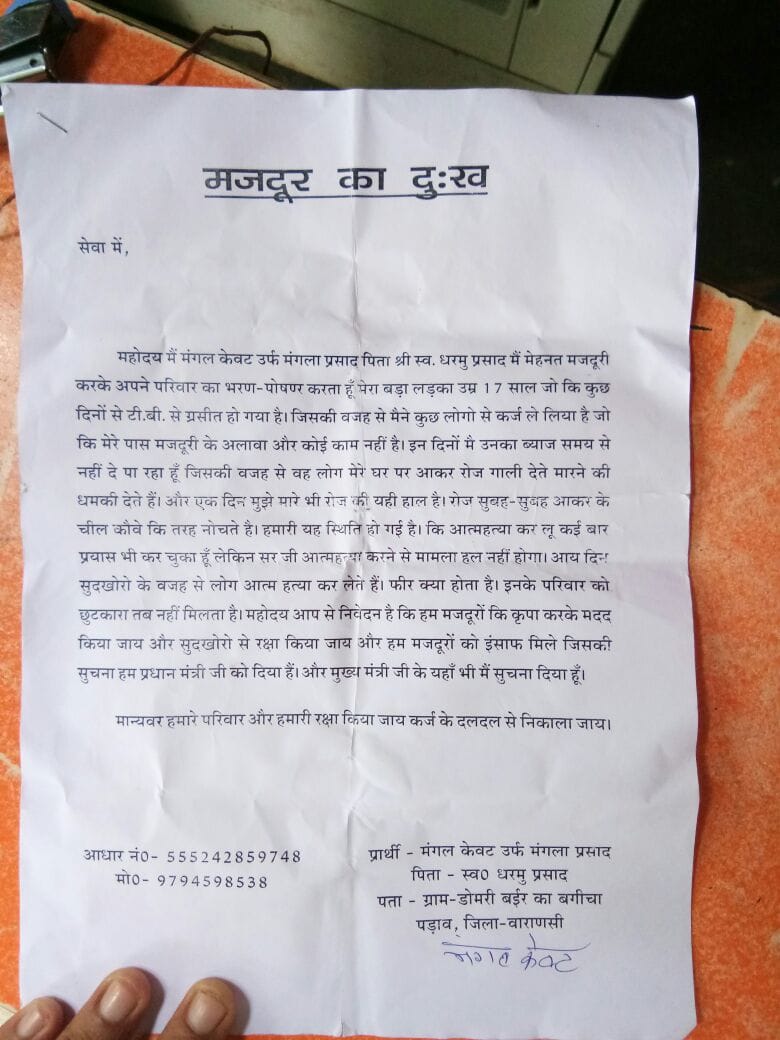 मजदूर का दुःख
सेवा में,
महोदय मैं मंगल केवट उर्फ मंगला प्रसाद पिता श्री स्व. धरमु प्रसाद मैं मेहनत मजदूरी
करके अपने परिवार का भरण-पोषण करता हूँ पेरा बड़ा लड़का उम्र 17 साल जो कि कुछ
दिनों से टी.बी. से ग्रसीत हो गया है। जिसकी वजह से मैने कुछ लोगो से कर्ज ले लिया है जो
कि मेरे पास मजदूरी के अलावा और कोई काम नहीं है। इन दिनों मै उनका ब्याज समय से
नहीं दे पा रहा हूँ जिसकी वजह से वह लोग मेरे घर पर आकर रोज गाली देते मारने की
धमकी देते हैं। और एक दिन मुझे मारे भी रोज की यही हाल है। रोज सुबह-सुबह आकर के
चील कौवे कि तरह नोचते है। हमारी यह स्थिति हो गई है। कि आत्महत्या कर लू कई बार
प्रयास भी कर चुका हूँ लेकिन सर जी आत्महत्या करने से मामला हल नहीं होगा। आय दिन
सुदखोरो के वजह से लोग आत्म हत्या कर लेते हैं। फीर क्या होता है। इनके परिवार को
छुटकारा तब नहीं मिलता है। महोदय आप से निवेदन है कि हम मजदूरों कि कृपा करके मदद
किया जाय और सुदखोरो से रक्षा किया जाय और हम मजदूरों को इंसाफ मिले जिसकी
सुचना हम प्रधान मंत्री जी को दिया हैं। और मुख्य मंत्री जी के यहाँ भी मैं सुचना दिया हूँ।
मान्यवर हमारे परिवार और हमारी रक्षा किया जाय कर्ज के दलदल से निकाला जाय।
आधार नं0- 555242859748
मो0- 9794598538
प्रार्थी - मंगल केवट उर्फ मंगला प्रसाद
पिता - स्व0 धरमु प्रसाद
पता - ग्राम-डोमरी बईर का बगीचा
पड़ाव, जिला-वाराणसी
मंगल केवट